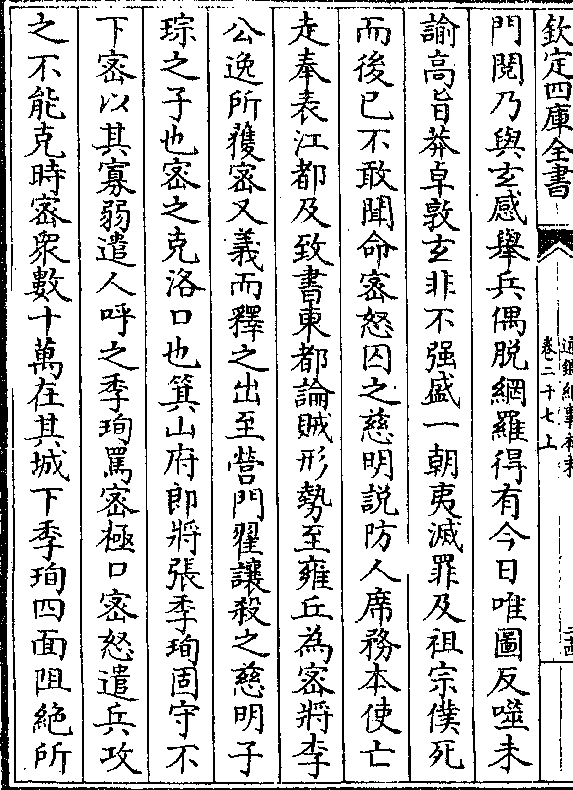 欽定四庫全書
通鑑紀事本末
卷二十七上
門閱乃與玄感舉兵偶脱網羅得有今日唯圖反噬未
諭高旨莽卓敦玄非不强盛一朝夷滅罪及祖宗僕死
而後已不敢聞命密怒囚之慈明説防人席務本使亡
走奉表江都及致書東都論賊形勢至雍丘為密將李
公逸所獲密又義而釋之出至營門翟讓殺之慈明子
琮之子也密之克洛口也箕山府郎將張季珣固守不
下密以其寡弱遣人呼之季珣罵密極口密怒遣兵攻
之不能克時密衆數十萬在其城下季珣四面阻絶所